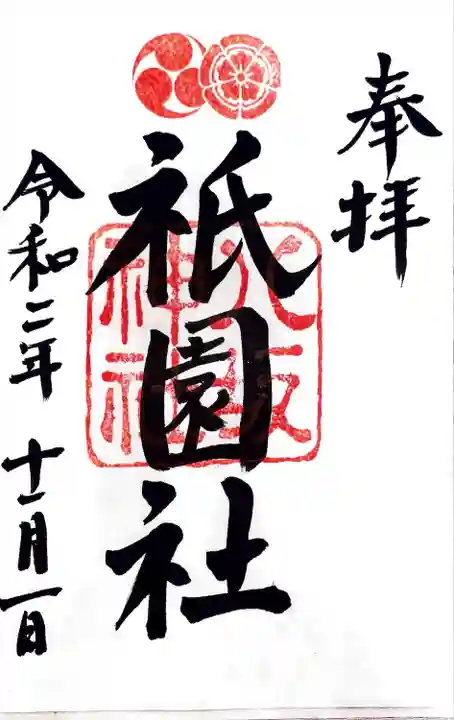 奉拝
祇園社
八坂
神社
令和二年 十一月一日